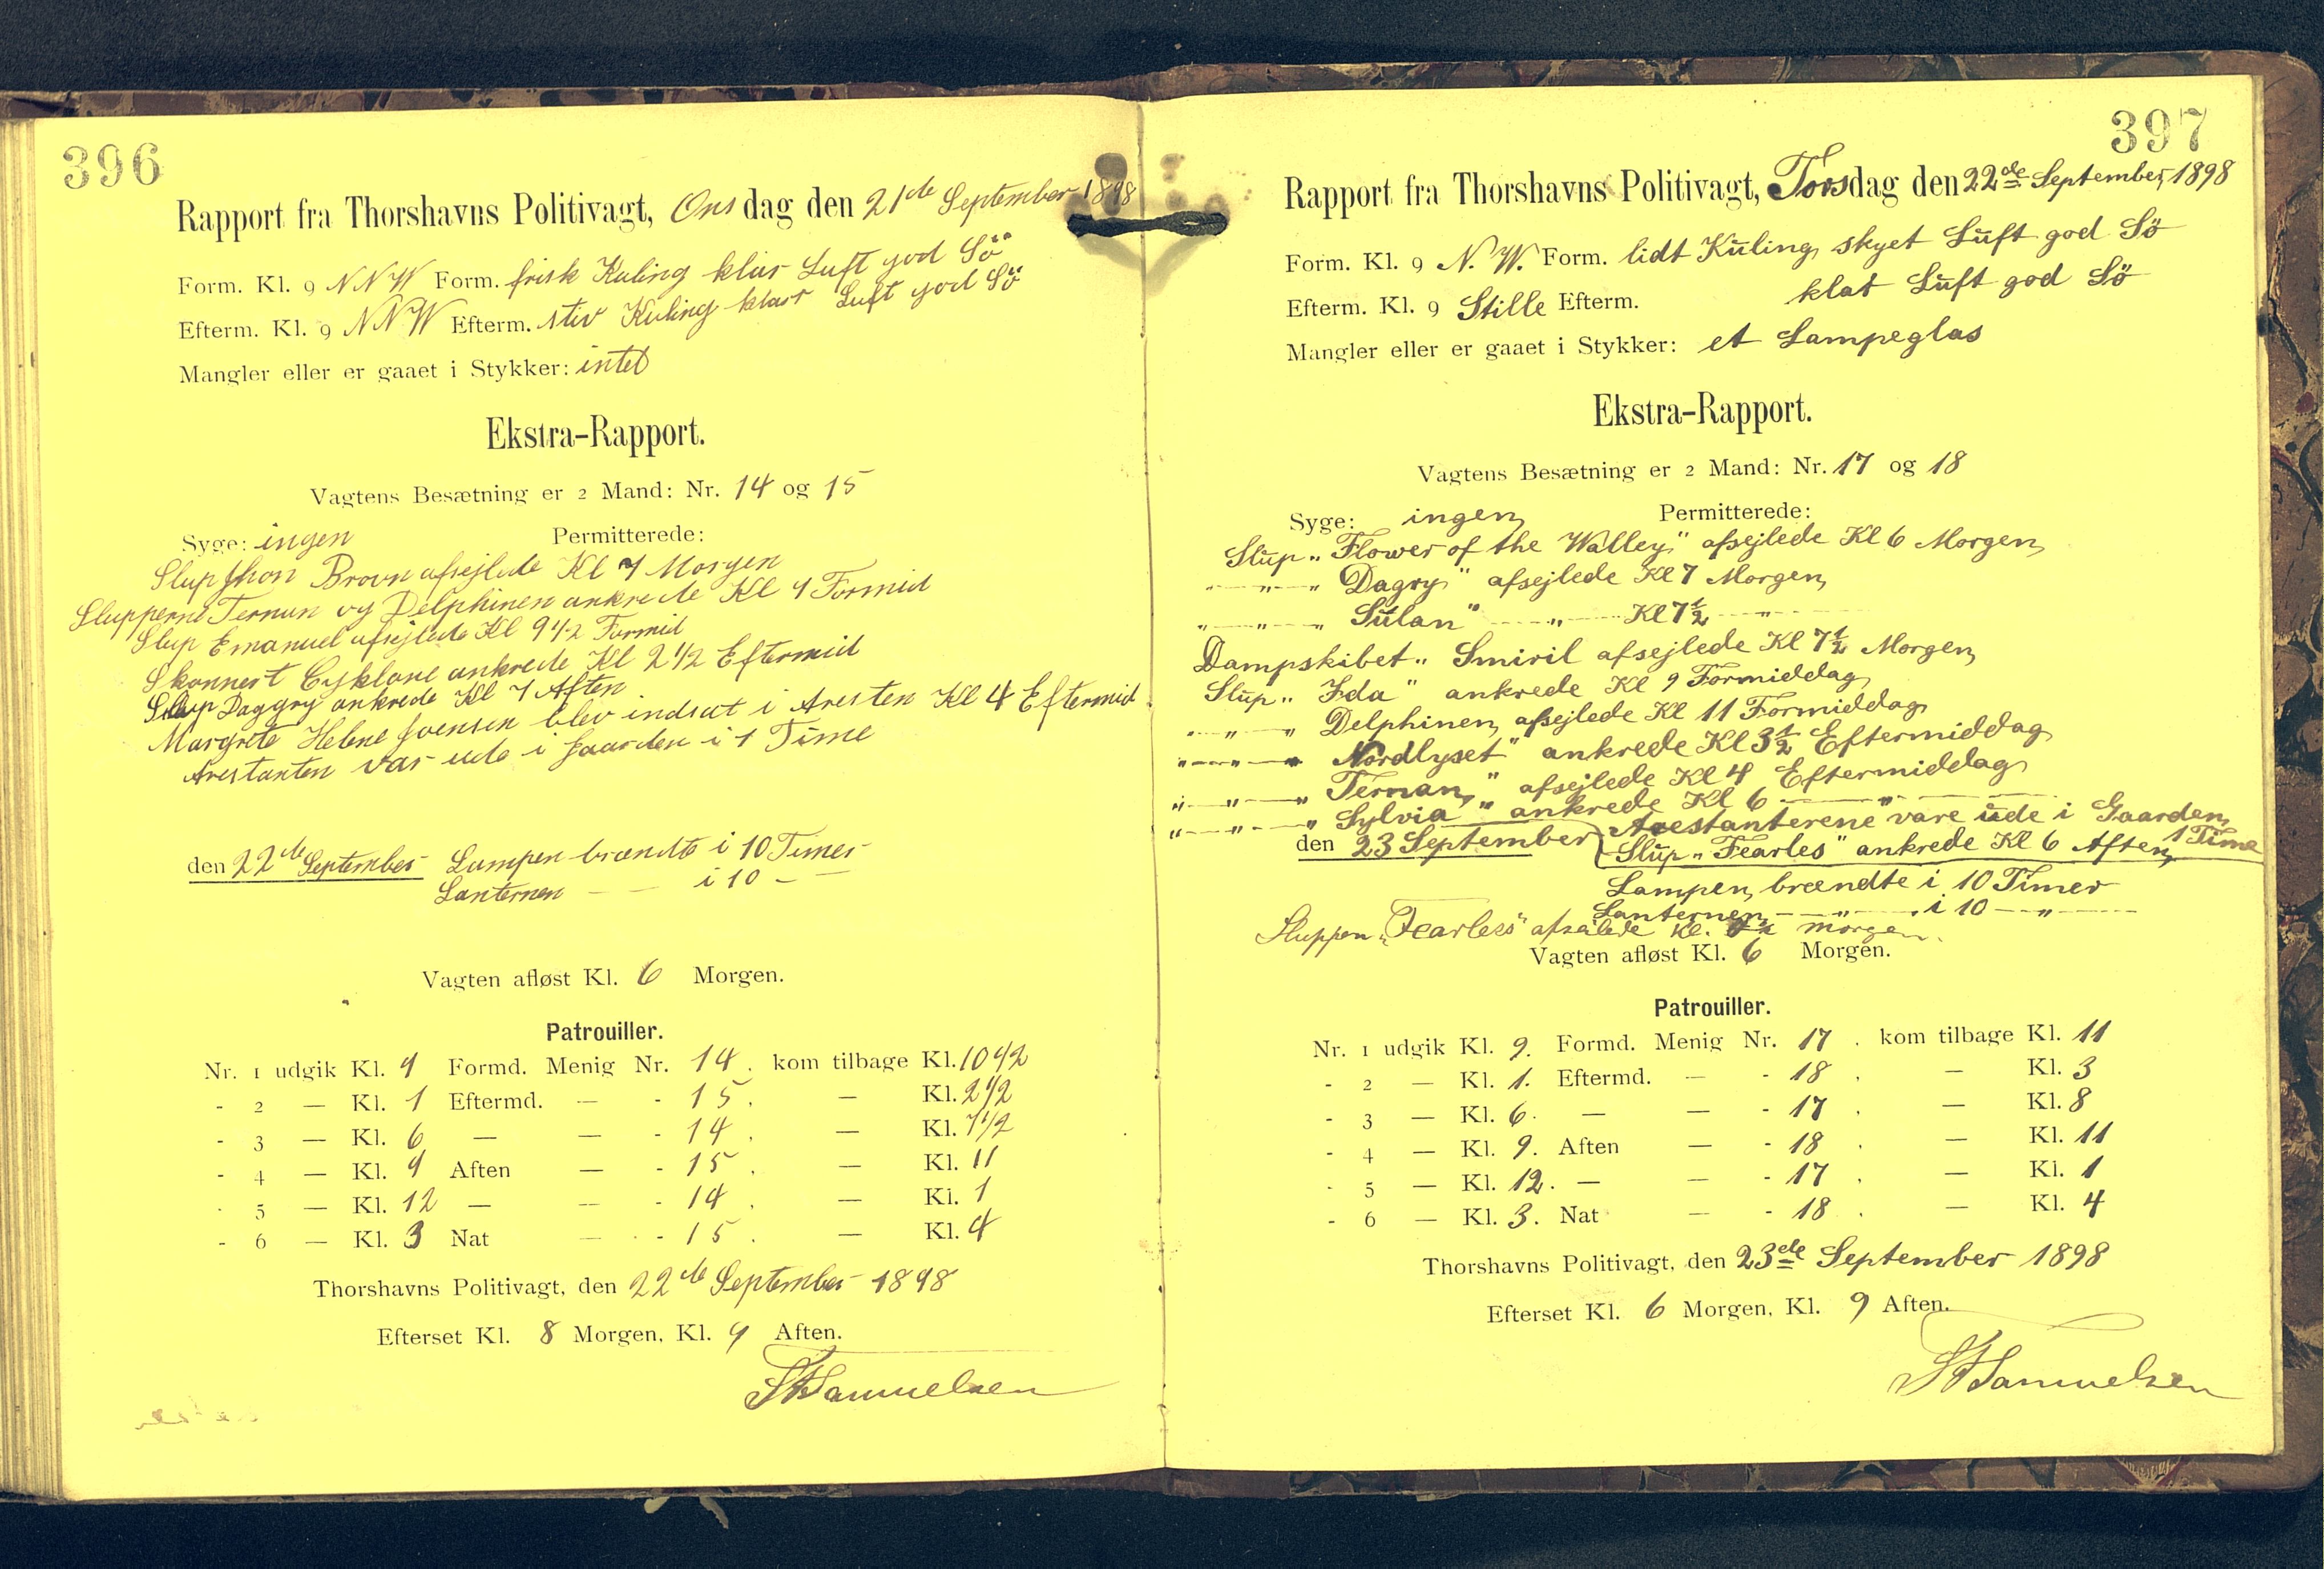 396
Rapport fra Thorshavns Politivagt, Onsdag den 21de September 1898
Form. Kl. 9 NNW Form. frisk Kuling klar Luft god Sö
Efterm. Kl. 9 NNW Efterm. stiv Kuling klar Luft god Sö
Mangler eller er gaaet i Stykker: intet
Ekstra-Rapport.
Vagtens Besætning er 2 Mand: Nr. 14 og 15
Syge: ingen Permitterede:
Slup Jhon Brovn afsejlede Kl 7 Morgen
Slupperne Ternun og Delphinen ankrede Kl 9 Formid
Slup Emanuel afsejlede Kl 9 1/2 Formid
Skonnert Cyklone ankrede Kl 2 1/2 Eftermid
Slup Daggry ankrede Kl 7 Aften
Margrete Helene Joensen blev indsat i Aresten Kl 4 Eftermid
Arestanten var ude i Gaarden i 1 Time
den 22de September Lampen brændte i 10 Timer
Lanternen — — i 10 — —
Vagten afløst Kl. 6 Morgen.
Patrouiller.
Nr. 1 udgik Kl. 9 Formd. Menig Nr. 14. kom tilbage Kl. 10 1/2
- 2 — Kl. 1 Eftermd. — - 15. — Kl. 2 1/2
- 3 — Kl. 6 — — - 14. — Kl. 7 1/2
- 4 — Kl. 9 Aften — - 15. — Kl. 11
- 5 — Kl. 12 — — - 14. — Kl. 1
- 6 — Kl. 3 Nat — - 15. — Kl. 4
Thorshavns Politivagt, den 22de September 1898
Efterset Kl. 8 Morgen, Kl. 9 Aften.
Samuelsen
397
Rapport fra Thorshavns Politivagt, Torsdag den 22de September, 1898
Form. Kl. 9 N. W. Form. lidt Kuling, skyet Luft god Sö
Efterm. Kl. 9 Stille Efterm. klat Luft god Sö
Mangler eller er gaaet i Stykker: et Lampeglas
Ekstra-Rapport.
Vagtens Besætning er 2 Mand: Nr. 17 og 18
Syge: ingen Permitterede:
Slup „Flower of the Walley" afsejlede Kl 6 Morgen
" — " — " Dagry" afsejlede Kl 7 Morgen,
" — " — " Sulan" — " — Kl 7 1/2 — " —
Dampskibet „Smiril afsejlede Kl 7 1/2 Morgen
Slup „Ida" ankrede Kl 9 Formiddag
" — " — " Delphinen, afsejlede Kl 11 Formiddag
" — " — " Nordlyset" ankrede Kl 3 1/2 Eftermiddag
" — " — " Ternan," afsejlede Kl 4 Eftermiddag
" — " — " Sylvia" ankrede Kl 6 — " —
Arestanterene vare ude i Gaarden, 1 Time
den 23 September Slup „Fearles" ankrede Kl 6 Aften,
Lampen, brændte i 10 Timer
Lanternen, — " — i 10 — " —
Sluppen „Fearless" afseilede Kl. morgen.
Vagten afløst Kl. 6 Morgen.
Patrouiller.
Nr. 1 udgik Kl. 9. Formd. Menig Nr. 17. kom tilbage Kl. 11
- 2 — Kl. 1. Eftermd. — - 18. — Kl. 3
- 3 — Kl. 6. — — - 17. — Kl. 8
- 4 — Kl. 9. Aften — - 18. — Kl. 11
- 5 — Kl. 12. — — - 17. — Kl. 1
- 6 — Kl. 3. Nat — - 18. — Kl. 4
Thorshavns Politivagt, den 23de September 1898
Efterset Kl. 6 Morgen, Kl. 9 Aften.
Samuelsen